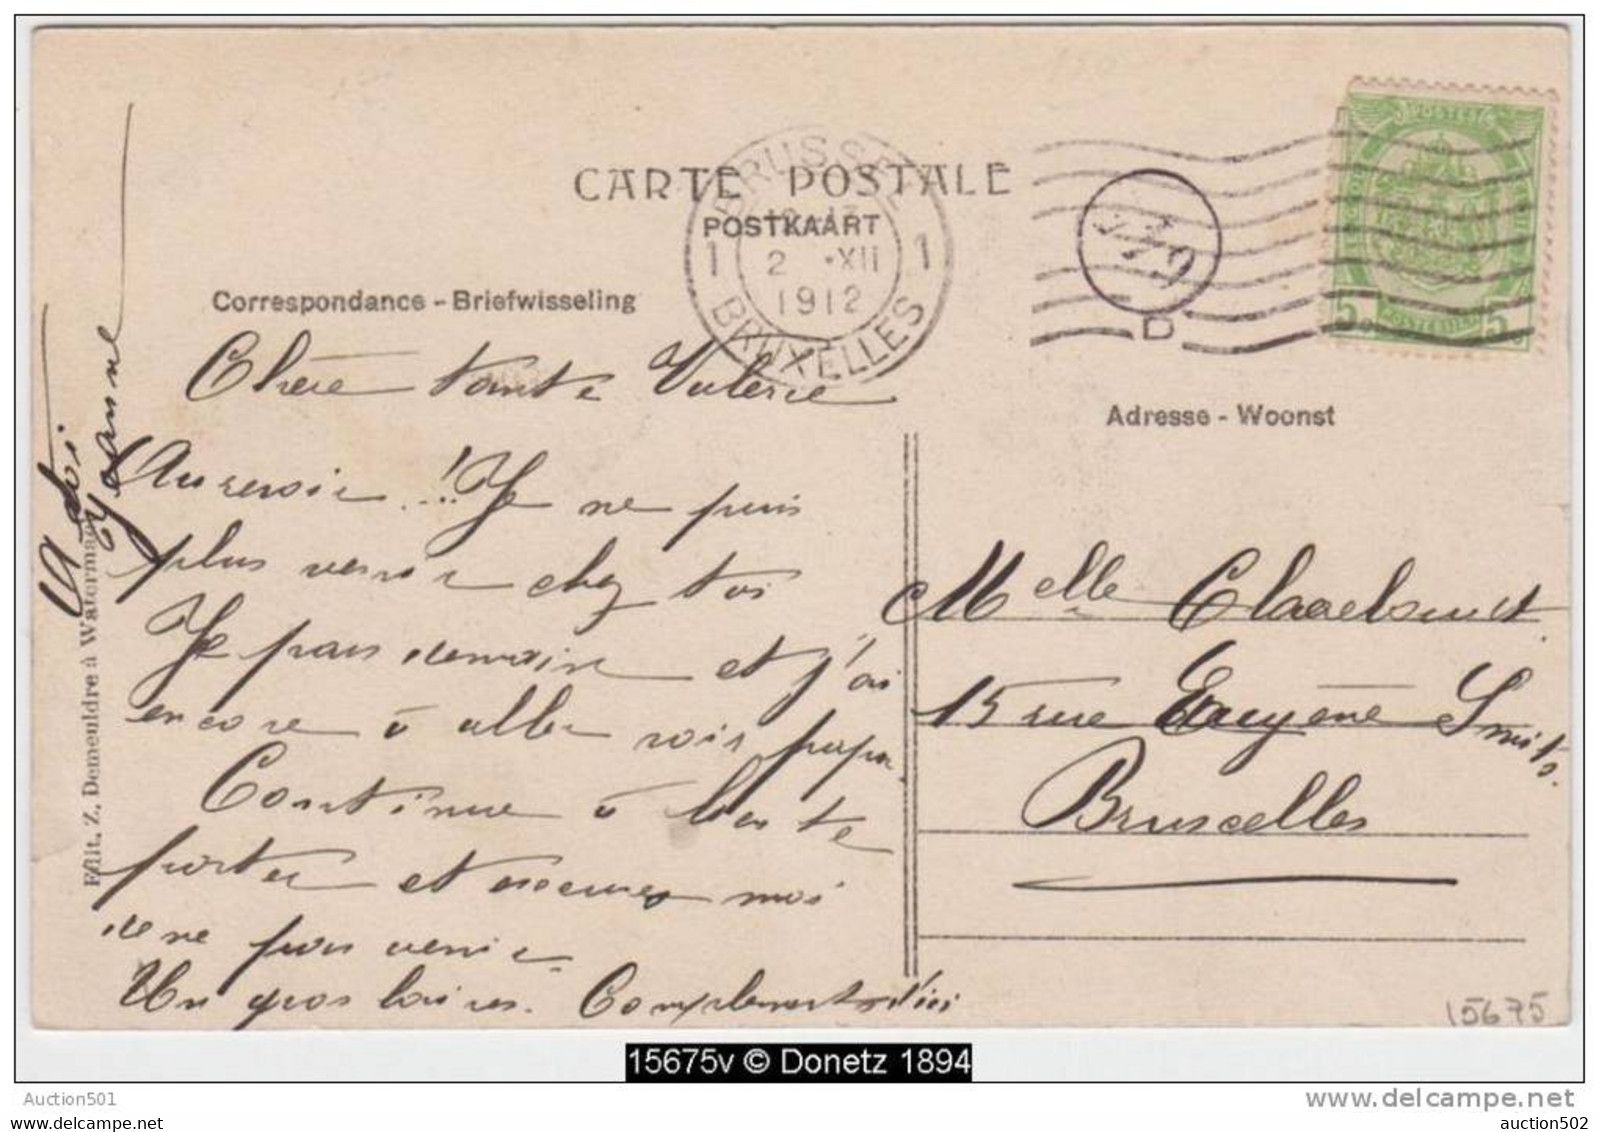 CARTE POSTALE
POSTKAART
BRUSSEL
1 2 XII 1
1912
BRUXELLES
D
POSTES
5 POSTERIJEN 5
Correspondance - Briefwisseling
Adresse - Woonst
Chère tante Valérie
Au revoir !.. Je ne puis
plus venir chez toi
Je pars demain et j'ai
encore à aller voir papa.
Continue à bien te
porter et excuses moi
de ne pas venir.
Un gros baiser. Compliments d'ici
A toi
Yvanne
Edit. Z. Demeuldre à Watermael
Melle
15 rue Eugène Smits.
Bruxelles
15675
15675v © Donetz 1894
Auction501
www.delcampe.net
auction502